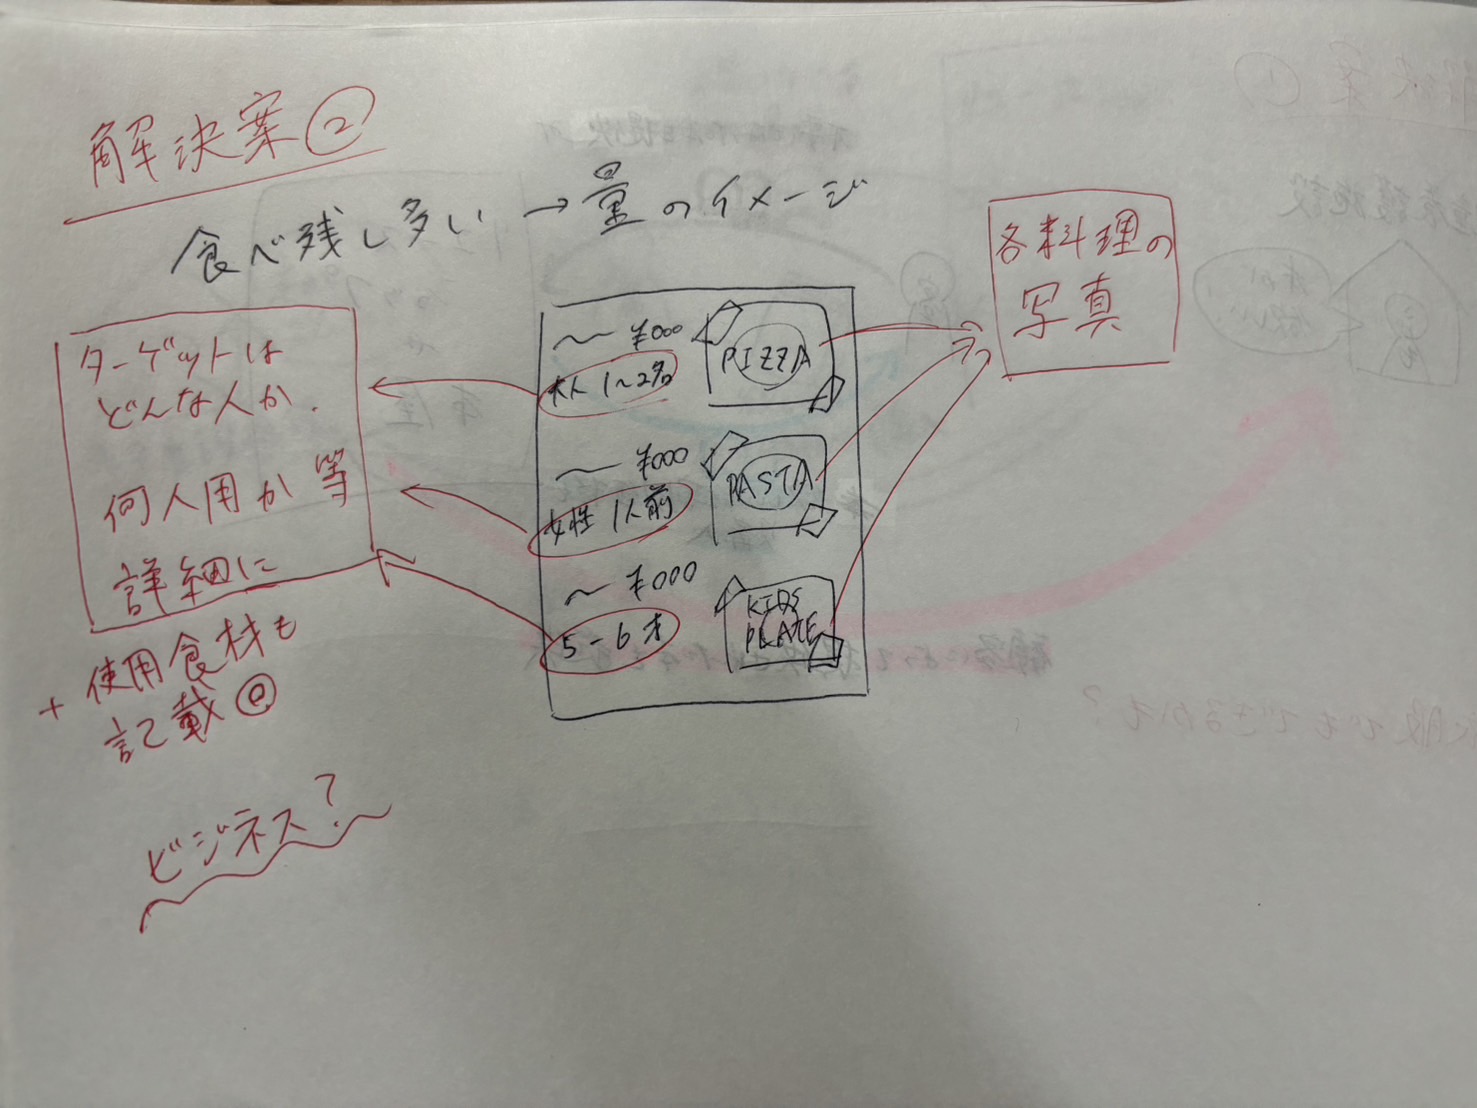 解決案②
食べ残し多い → 量のイメージ
ターゲットは
どんな人か.
何人用か 等
詳細に
+ 使用食材も
記載@
ビジネス?
~ ¥000
大人 1~2名
PIZZA
~ ¥000
女性 1人前
PASTA
~ ¥000
5-6才
KIDS
PLATE
各料理の
写真